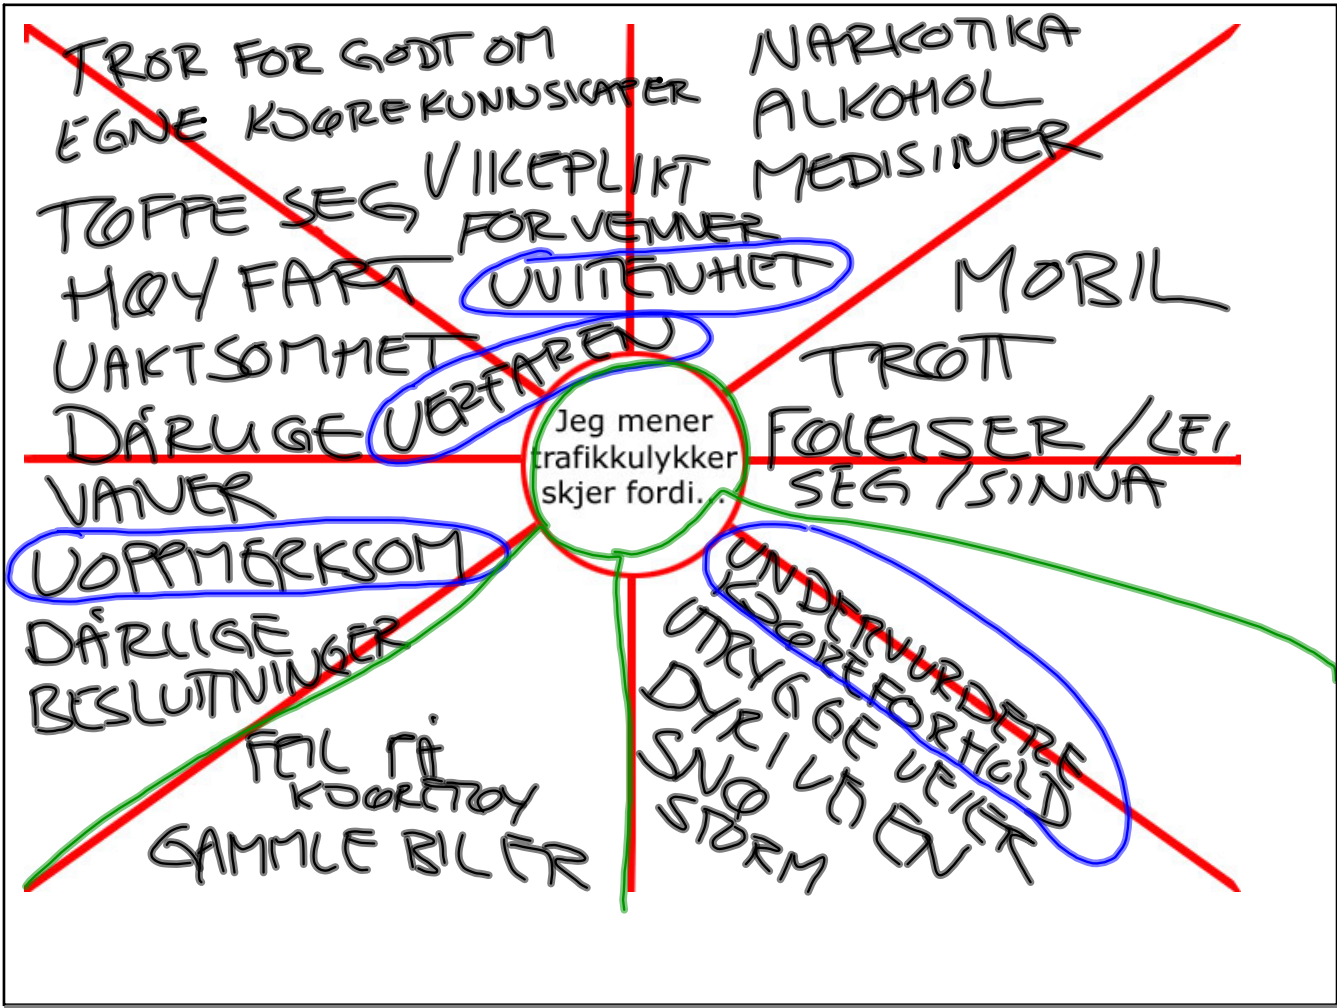 TROR FOR GODT OM
EGNE KJØREKUNNSKAPER
TØFFE SEG
HØY FART
UAKTSOMHET
DÅRLIGE
VANER
UOPPMERKSOM
DÅRLIGE
BESLUTNINGER
VIKEPLIKT
FOR VENNER
UVITENHET
UERFAREN
NARKOTIKA
ALKOHOL
MEDISINER
MOBIL
TRØTT
FØLELSER / LEI
SEG / SINNA
Jeg mener
trafikkulykker
skjer fordi...
UNDERVURDERE
KJØREFORHOLD
UTRYGGE VEIER
DYR I VEIEN
SNØ
STORM
FEIL PÅ
KJØRETØY
GAMMLE BILER